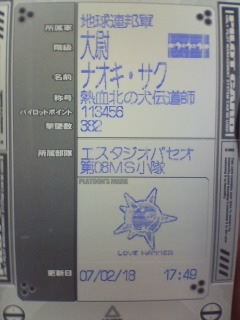 所属軍 地球連邦軍
階級 大尉
名前 ナオキ・サク
称号 熱血北の犬伝道師
パイロットポイント 113456
撃墜数 382
所属部隊 エスタジオパセオ
第08MS小隊
PLATOON'S MARK
LOVE HAMMER
更新日 07/02/18 17:49